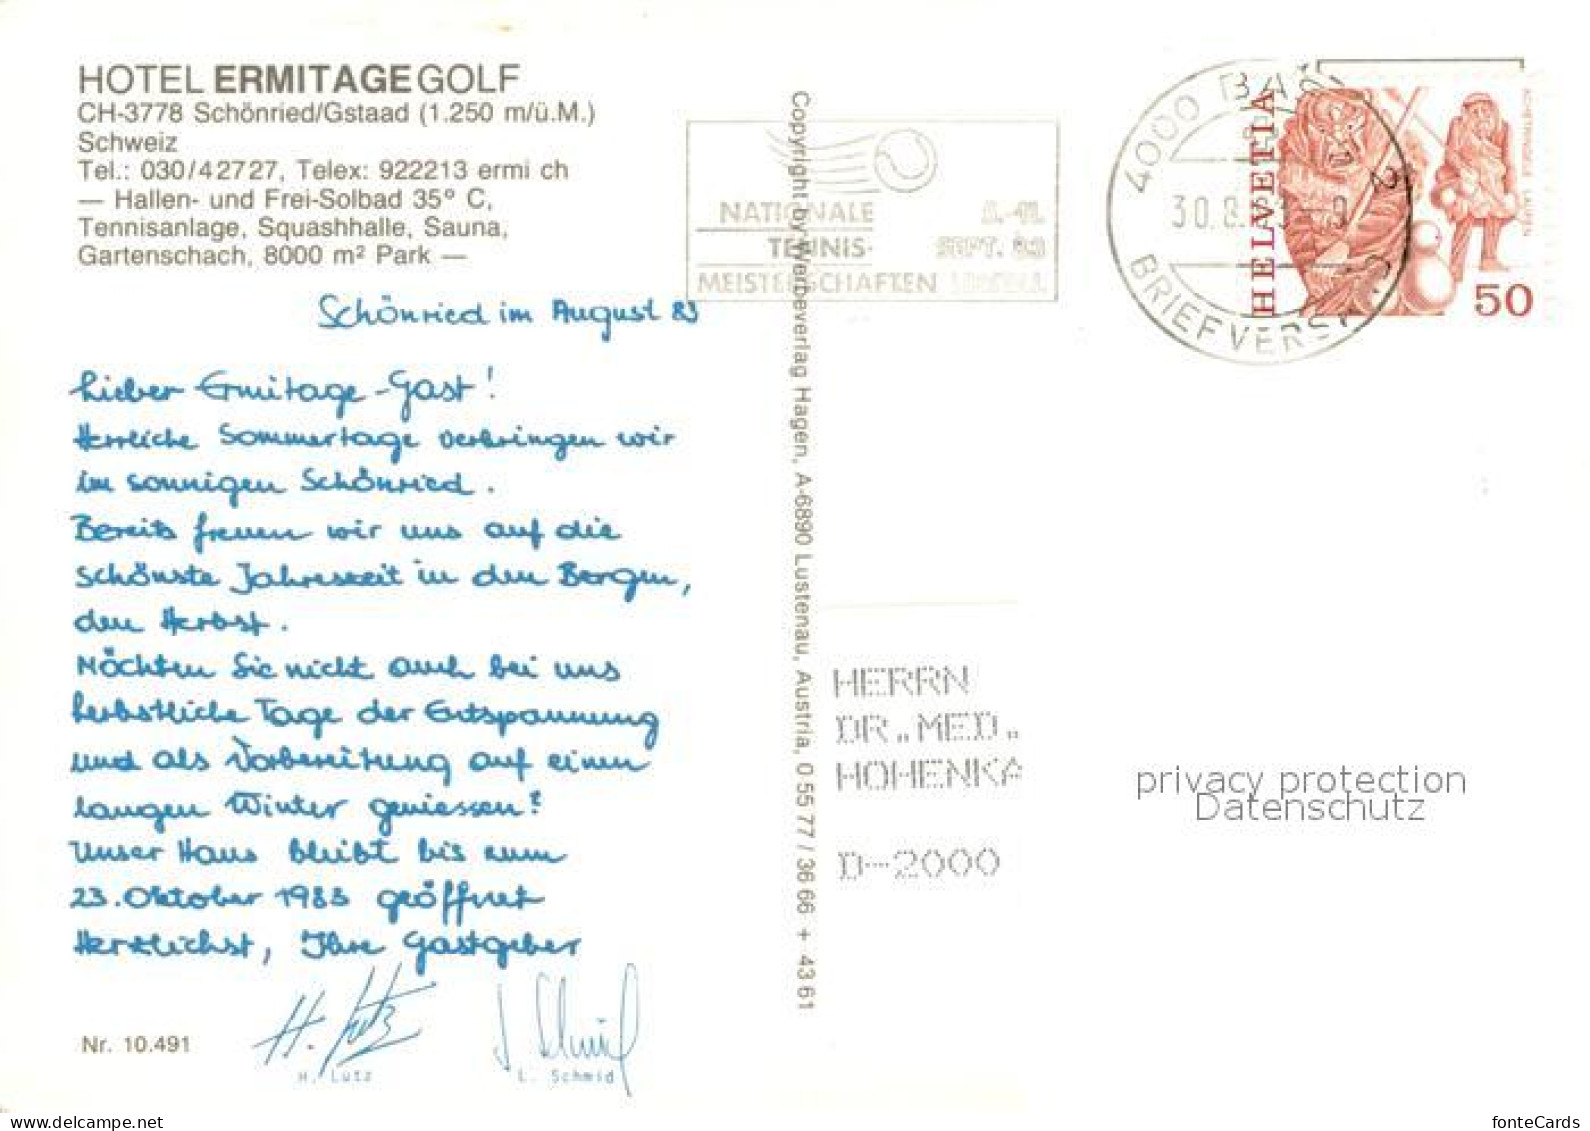 HOTEL ERMITAGE GOLF
CH-3778 Schönried/Gstaad (1.250 m/ü.M.)
Schweiz
Tel.: 030/42727, Telex: 922213 ermi ch
— Hallen- und Frei-Solbad 35° C,
Tennisanlage, Squashhalle, Sauna,
Gartenschach, 8000 m² Park —
Schönried im August 83
Lieber Ermitage-Gast!
Herrliche Sommertage verbringen wir
im sonnigen Schönried.
Bereits freuen wir uns auf die
schönste Jahreszeit in den Bergen,
den Herbst.
Möchten Sie nicht auch bei uns
herbstliche Tage der Entspannung
und als Vorbereitung auf einen
langen Winter geniessen?
Unser Haus bleibt bis zum
23. Oktober 1983 geöffnet
Herzlichst, Ihre Gastgeber
H. Lutz
L. Schmid
H. Lutz
L. Schmid
Nr. 10.491
Copyright by Werbeverlag Hagen, A-6890 Lustenau, Austria, 0 55 77 / 36 66 + 43 61
NATIONALE
TENNIS-
SEPT. 83
MEISTERSCHAFTEN
4000 BAS
30.8.83-9
BRIEFVERSA
HELVETIA
50
HERRN
DR.MED.
HOHENKA
D-2000
privacy protection
Datenschutz
fonteCards
www.delcampe.net